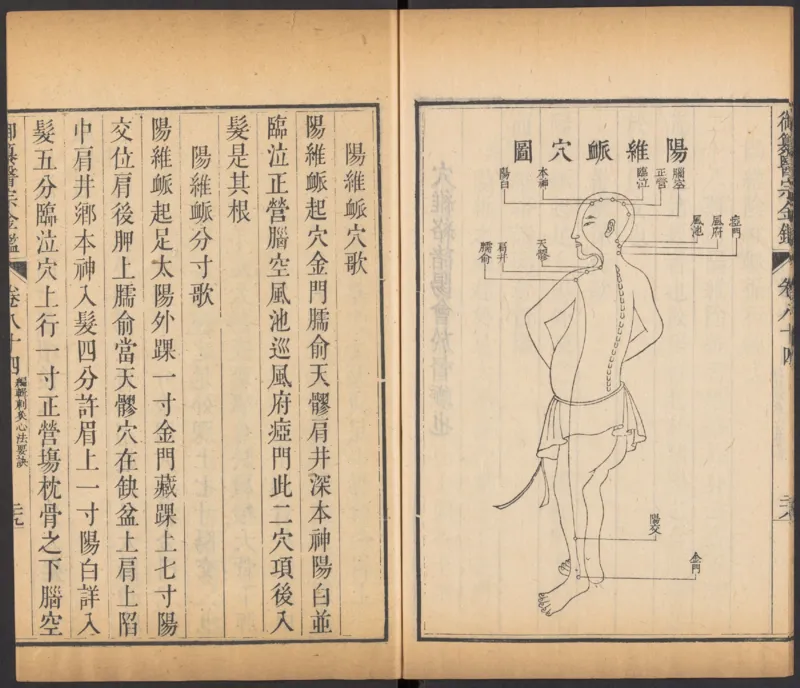 陽維脈穴圖
瘂門
風府
風池
腦空
正營
臨泣
本神
陽白
天髎
肩井
臑俞
陽交
金門
御纂醫宗金鑑
卷八十四
陽維脈穴歌
陽維脈起穴金門臑俞天髎肩井深本神陽白並
臨泣正營腦空風池巡風府瘂門此二穴項後入
髮是其根
陽維脈分寸歌
陽維脈起足太陽外踝一寸金門藏踝上七寸陽
交位肩後胛上臑俞當天髎穴在缺盆上肩上陷
中肩井鄉本神入髮四分許眉上一寸陽白詳入
髮五分臨泣穴上行一寸正營塲枕骨之下腦空
御纂醫宗金鑑
卷八十四
編輯刺灸心法要訣